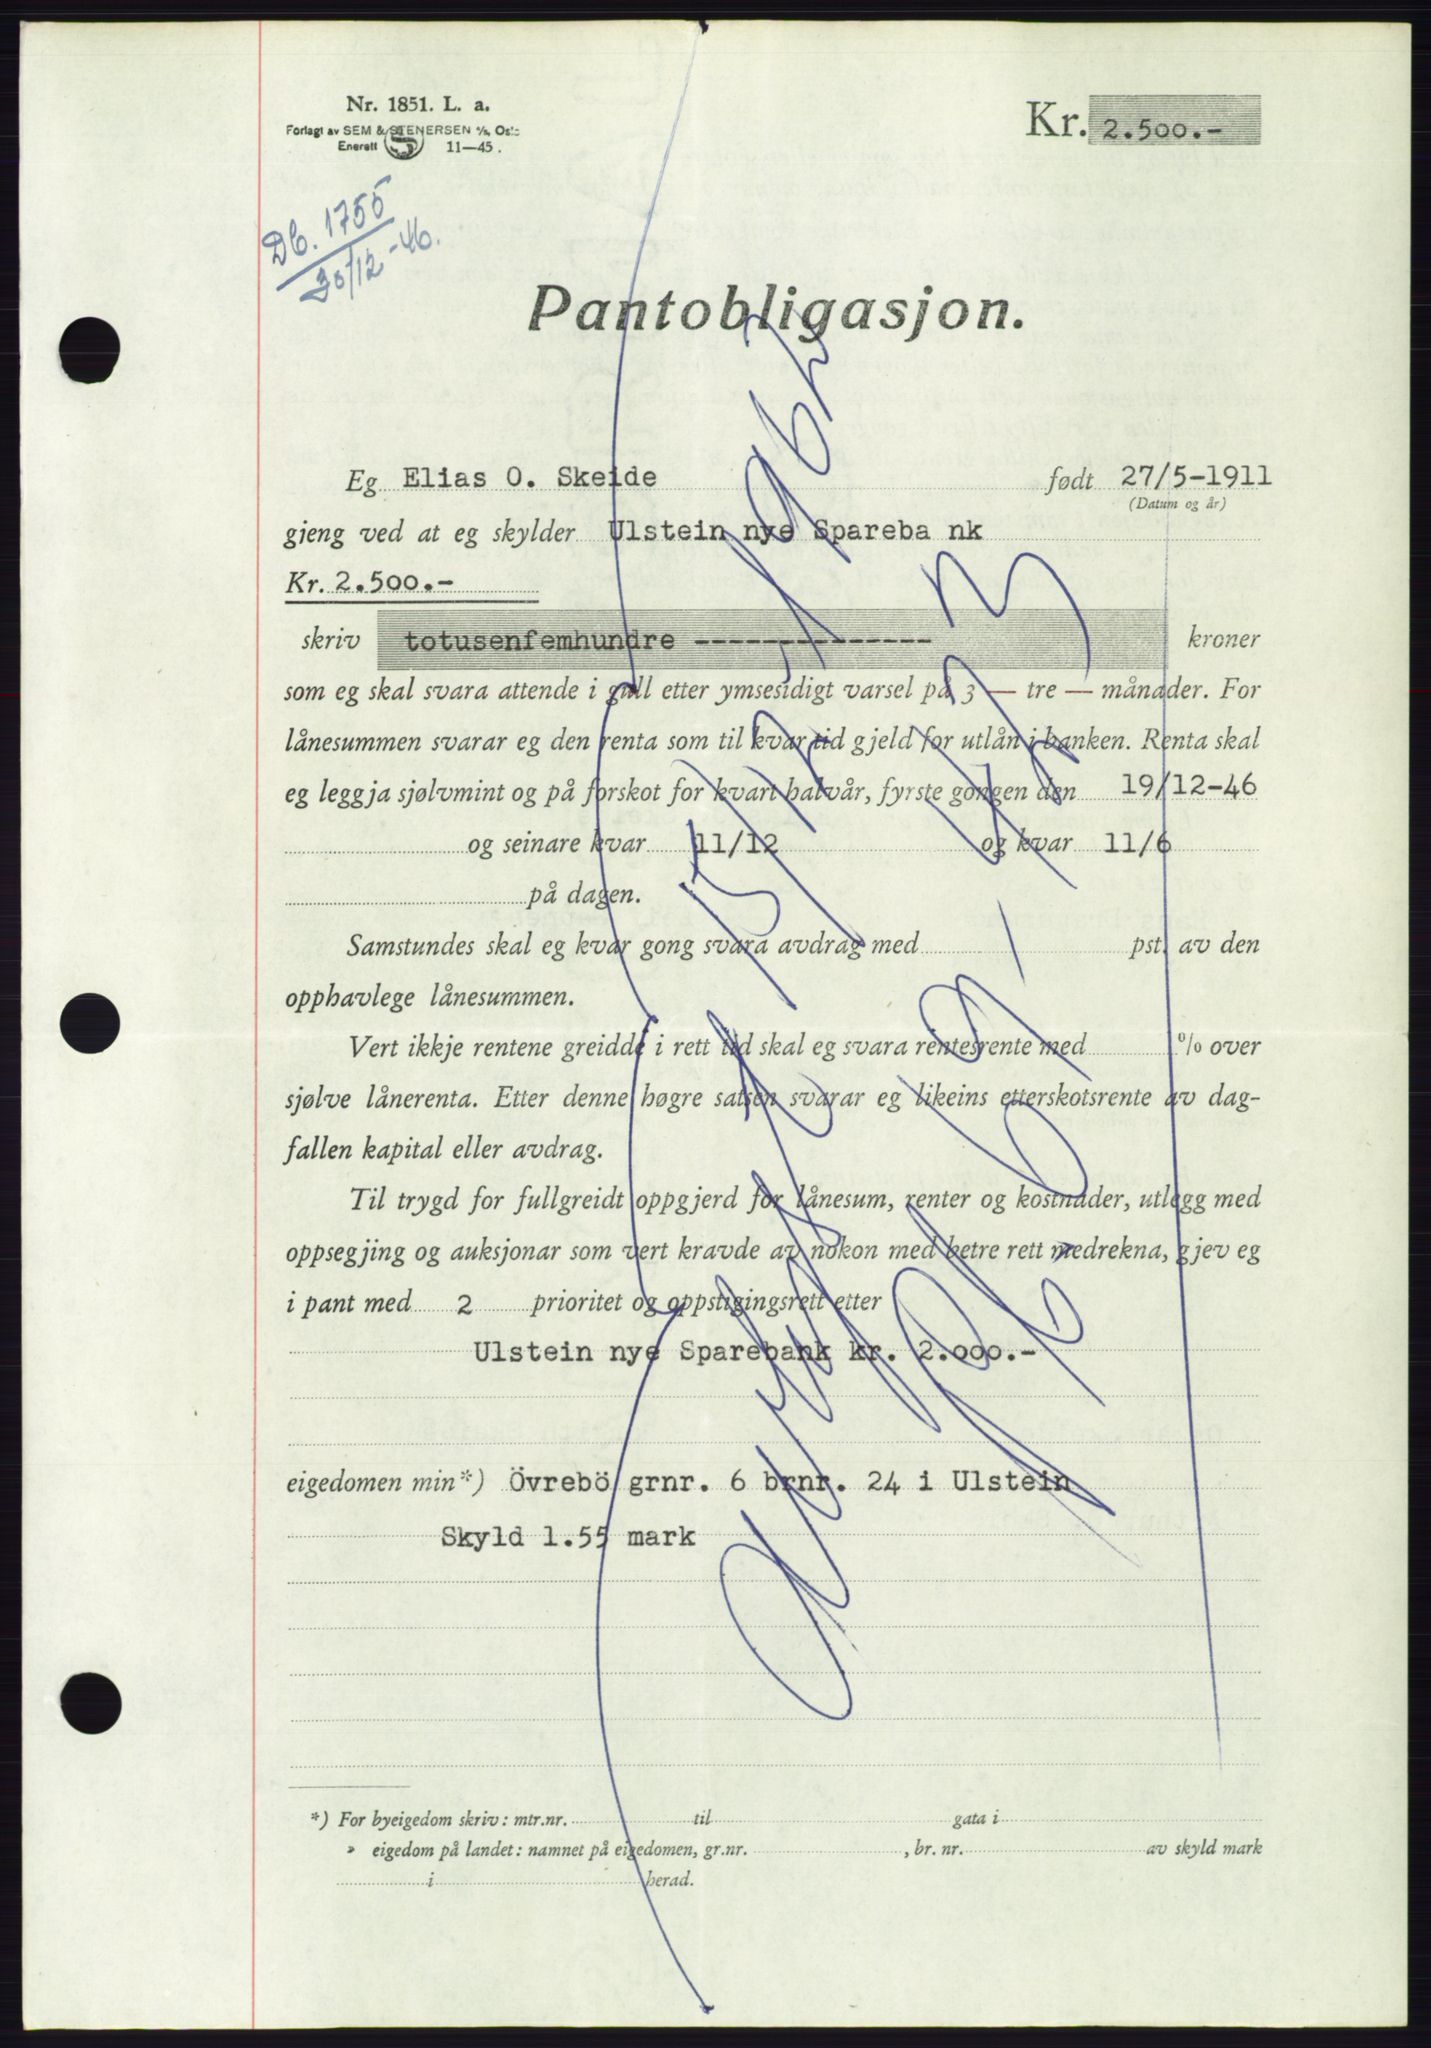 Nr. 1851. L. a.
Forlagt av SEM & STENERSEN A/S, Oslo
Enerett 11—45.
Kr. 2.500.-
Db. 1755
30/12-46.
Pantobligasjon.
Eg Elias O. Skeide født 27/5-1911
(Datum og år)
gjeng ved at eg skylder Ulstein nye Spareba nk
Kr. 2.500.-
skriv totusenfemhundre -------------- kroner
som eg skal svara attende i gull etter ymsesidigt varsel på 3 — tre — månader. For
lånesummen svarar eg den renta som til kvar tid gjeld for utlån i banken. Renta skal
eg leggja sjølvmint og på forskot for kvart halvår, fyrste gongen den 19/12-46
og seinare kvar 11/12 og kvar 11/6
på dagen.
Samstundes skal eg kvar gong svara avdrag med pst. av den
opphavlege lånesummen.
Vert ikkje rentene greidde i rett tid skal eg svara rentesrente med % over
sjølve lånerenta. Etter denne høgre satsen svarar eg likeins etterskotsrente av dag-
fallen kapital eller avdrag.
Til trygd for fullgreidt oppgjerd for lånesum, renter og kostnader, utlegg med
oppsegjing og auksjonar som vert kravde av nokon med betre rett medrekna, gjev eg
i pant med 2 prioritet og oppstigingsrett etter
Ulstein nye Sparebank kr. 2.000.-
eigedomen min*) Övrebö grnr. 6 brnr. 24 i Ulstein
Skyld 1.55 mark
*) For byeigedom skriv: mtr.nr. til gata i
» eigedom på landet: namnet på eigedomen, gr.nr. , br. nr. av skyld mark
i herad.